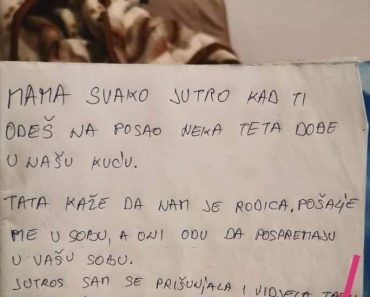 MAMA SVAKO JUTRO KAD TI
ODEŠ NA POSAO NEKA TETA DOĐE
U NAŠU KUĆU.
TATA KAŽE DA NAM JE RODICA, POŠALJE
ME U SOBU, A ONI ODU DA POSPREMAJU
U VAŠU SOBU.
JUTROS SAM SE PRIŠULJALA I VIDJELA